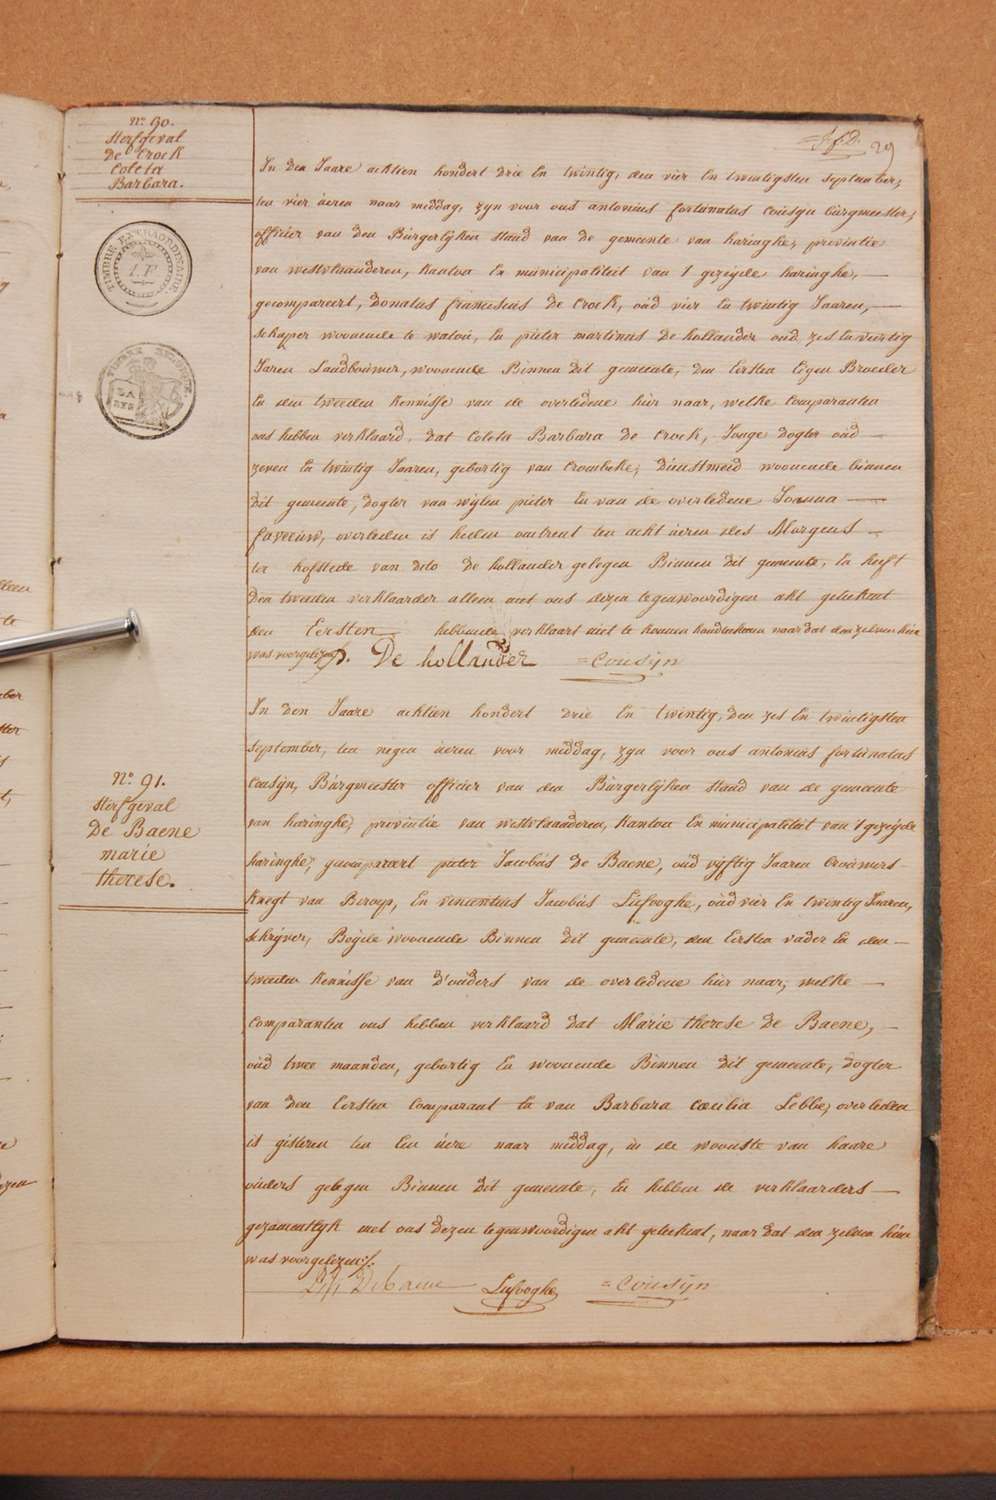 29
n.º 90.
sterfgeval
De Crock
Coleta
Barbara.
TIMBRE EXTRAORDINAIRE
1.F.
In den Jaare achtien hondert drie en twintig, den vier en twintigsten september,
ten vier ueren naar middag, zyn voor ons antonius fortunatus cousyn burgmeester,
officier van den Burgerlyken stand van de gemeente van haringhe, provintie
van westvlaanderen, kanton en municipaliteit van 't gezeyde haringhe,
gecompareert, donatus franciscus De Crock, oud vier en twintig Jaaren,
schaper woonende te watou, en pieter martinus De hollander oud zes en veertig
Jaren Landbouwer, woonende Binnen dit gemeente, den Eersten Eigen Broeder
en den tweeden kennisse van de overledene hier naar, welke comparanten
ons hebben verklaard, dat Coleta Barbara De Crock, Jonge dogter oud
zeven en twintig Jaaren, gebortig van Crombeke, dienstmeid woonende binnen
dit gemeente, dogter van wylen pieter en van de overledene Joanna
faveeuw, overleden is heden omtrent ten acht ueren des Morgens
ter hofstede van dito de hollander gelegen Binnen dit gemeente, en heeft
den tweeden verklaarder alleen met ons dezen tegenwoordigen akt geteekent
den Eersten hebbende verklaart niet te konnen handteekenen naar dat den zelven hun
was voorgelezen. De hollander =Cousyn
n.º 91.
sterfgeval
De Baene
marie
therese.
In den Jaare achtien hondert drie en twintig, den zes en twintigsten
september, ten negen ueren voor middag, zyn voor ons antonius fortunatus
cousyn, Burgmeester officier van den Burgerlyken stand van de gemeente
van haringhe, provintie van westvlaanderen, kanton en municipaliteit van 't gezeyde
haringhe, gecompareert pieter Jacobus De Baene, oud vyftig Jaaren brouwers
knegt van Beroep, en vincentius Jacobus Lefooghe, oud vier en twintig Jaaren,
schryver, Beyde woonende Binnen dit gemeente, den Eersten vader en den
tweeden kennisse van d'ouders van de overledene hier naar, welke
comparanten ons hebben verklaard dat Marie therese De Baene,
oud twee maanden, gebortig en woonende Binnen dit gemeente, dogter
van den Eersten comparant en van Barbara Cœcilia Lebbe, overleden
is gisteren ten een uere naar middag, in de woonste van haare
ouders gelegen Binnen dit gemeente, en hebben de verklaarders
gezamentlyk met ons dezen tegenwoordigen akt geteekent, naar dat den zelven hun
was voorgelezen.
Debaene Lefooghe =Cousyn